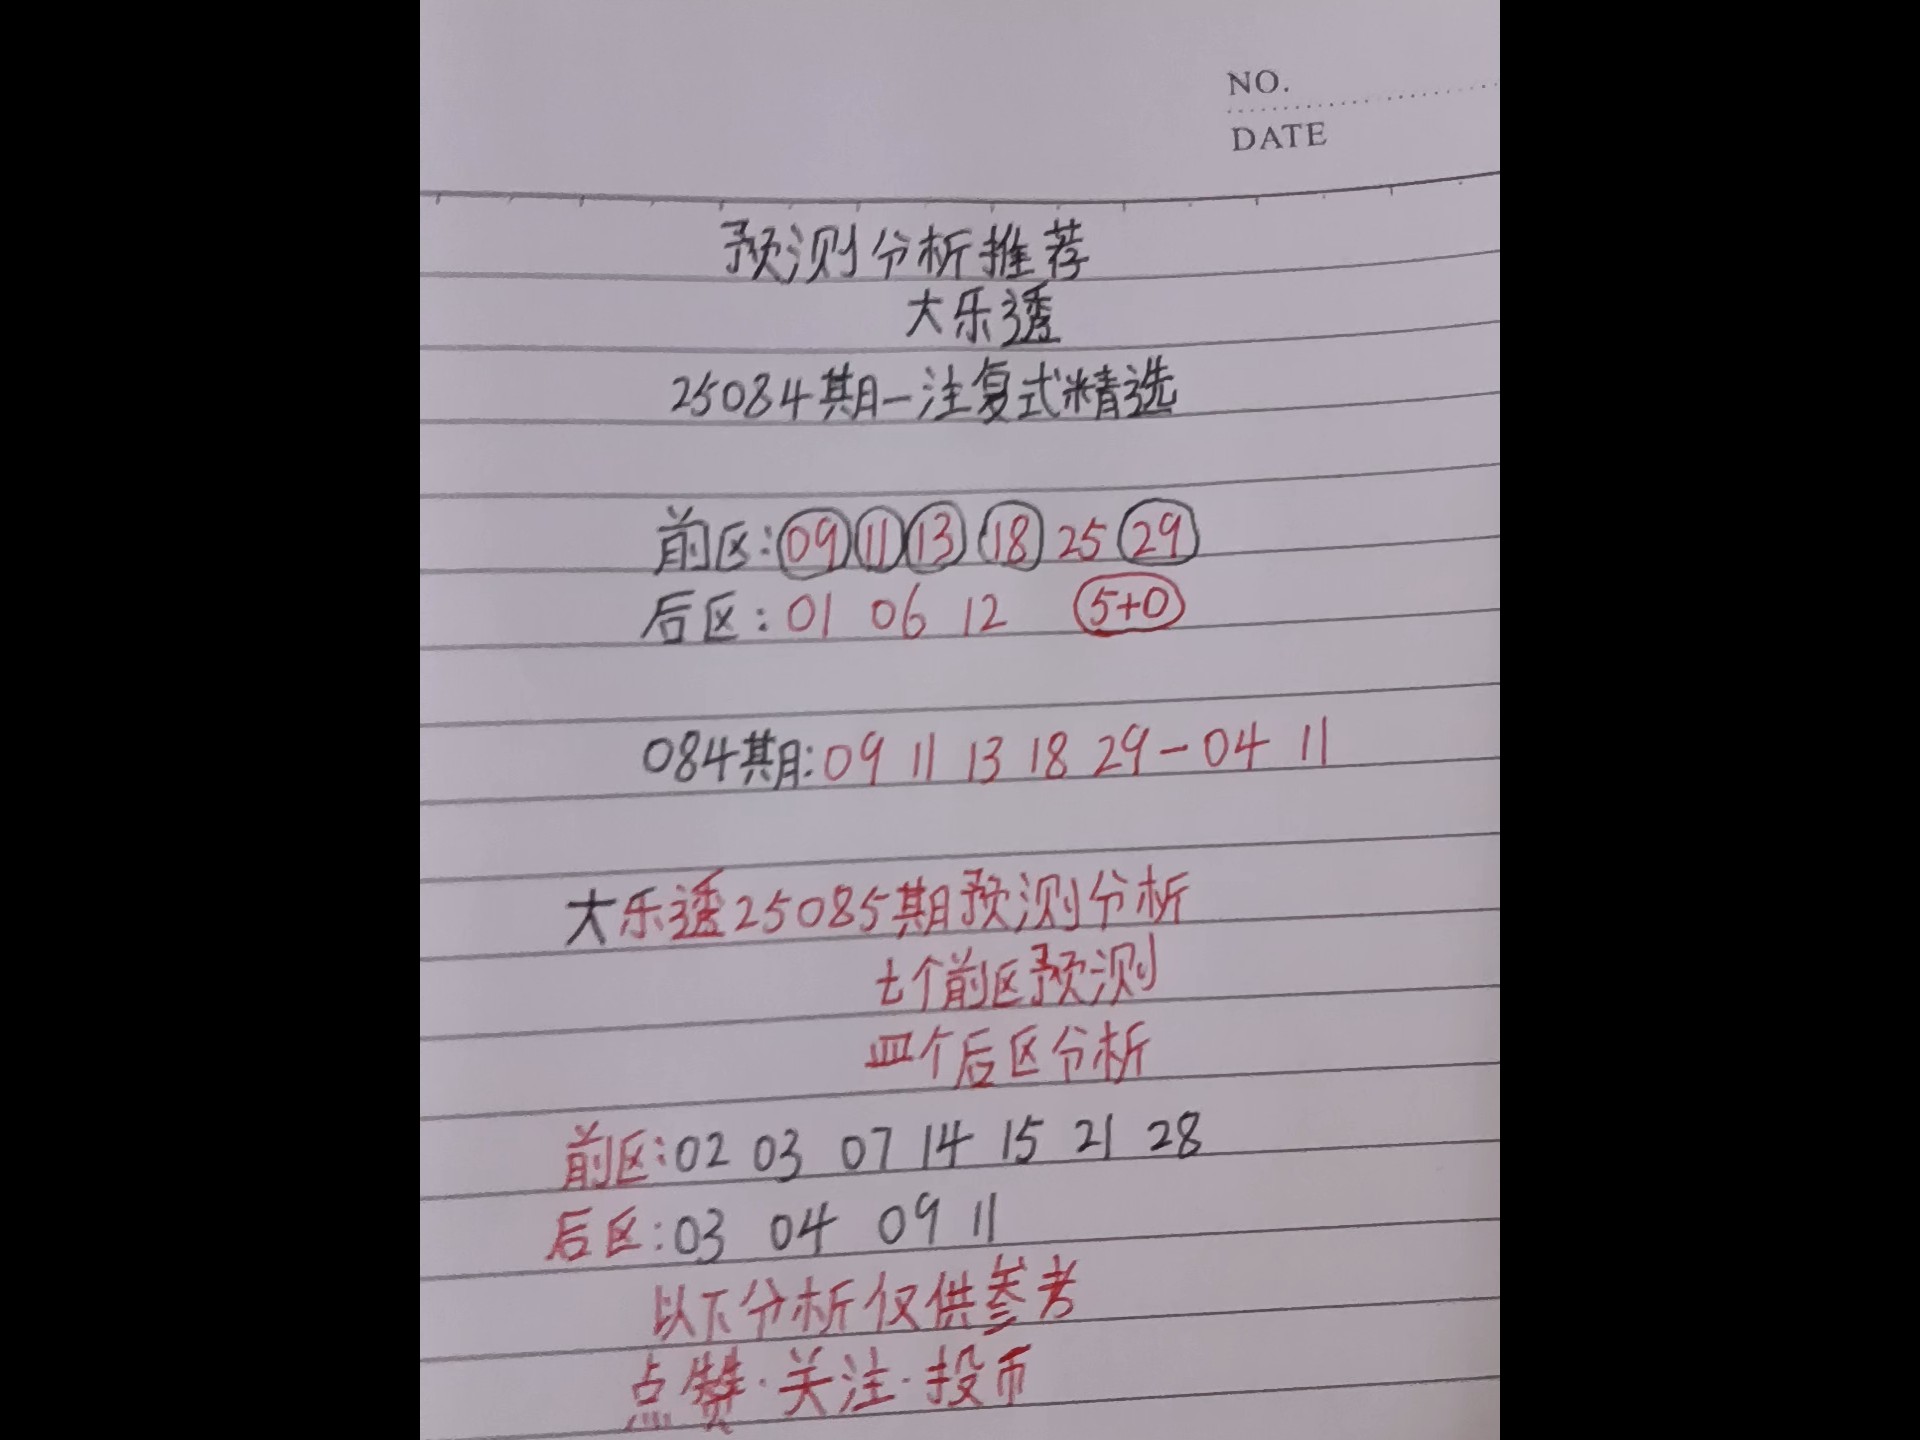 NO.
DATE
预测分析推荐
大乐透
25084期一注复式精选
前区:09 11 13 18 25 29
后区:01 06 12 5+0
084期:09 11 13 18 29-04 11
大乐透25085期预测分析
七个前区预测
四个后区分析
前区:02 03 07 14 15 21 28
后区:03 04 09 11
以下分析仅供参考
点赞·关注·投币